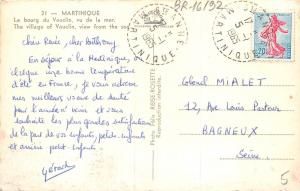 21 — MARTINIQUE
Le bourg du Vauclin, vu de la mer
The village of Vauclin, view from the sea
BR-16192
MARTINIQUE
Chère Renée, cher Anthony
En séjour à la Martinique, où
chaque une bonne température
d'été en France, je vous adresse
mes meilleurs vœux de santé
pour l'année à venir et vous
souhaite les plus grandes satisfactions
de la part de vos enfants, petits-enfants
et arrière petit-enfants.
Gérard
Photo Félix ROSE-ROSETTE
Reproduction interdite
0,20
Colonel MIALET
12, Rue Louis Pasteur
BAGNEUX
Seine.
5